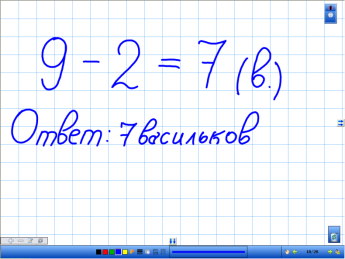 9 - 2 = 7 (в.)
Ответ: 7 васильков